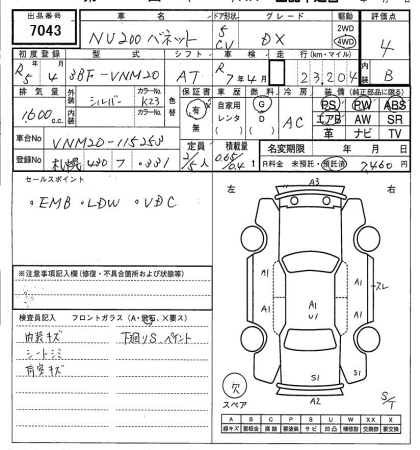 出品番号 車名 ドア形状 グレード 駆動 評価点
7043 NV200 バネット 5 CV DX 2WD 4WD 4
初度登録 型式 シフト 車検 走行(km・マイル) 内装
R5年4月 3BF-VNM20 AT R7年4月 23,204 B
排気量 外装 カラーNo. 色替 保証書 車歴 燃料 冷房 装備(純正部品に限る)
1600 c.c. シルバー K23 有 無 自家用 レンタ ( ) G D ( ) AC PS PW ABS
エアB AW SR
革 ナビ TV
内装 カラーNo.
車台No VNM20-115253
定員 積載量 名変期限 年 月 日
登録No 札幌 480 2/5人 t R料金 未預託・預託済 7,460円
セールスポイント
・EMB ・LDW ・VDC
左 右
A3
A1 A1
A1 A1 A1 スレ
U1
S1 S1
A2
欠
スペア
※注意事項記入欄(修復・不具合箇所および状態等)
検査員記入 フロントガラス(A・飛石、X要ス)
内装キズ 下廻りS、ペイント
シートシミ
荷室キズ
S/T
A B C P S U W XX X
線キズ 要板金 腐蝕 要塗装 サビ 凹凸 補修跡 交換跡 要交換